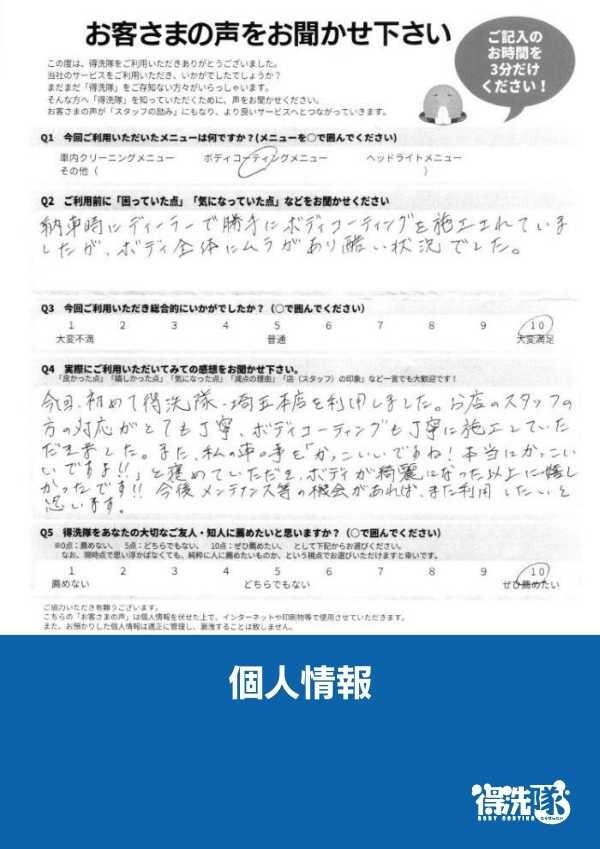 お客さまの声をお聞かせ下さい
ご記入の
お時間を
3分だけ
ください！
この度は、得洗隊をご利用いただきありがとうございました。
当社のサービスをご利用いただき、いかがでしたでしょうか？
まだまだ「得洗隊」をご存知ない方々がいらっしゃいます。
そんな方へ「得洗隊」を知っていただくために、声をお聞かせください。
お客さまの声が「スタッフの励み」にもなり、より良いサービスへとつながっていきます。
Q1 今回ご利用いただいたメニューは何ですか？(メニューを○で囲んでください)
車内クリーニングメニュー ボディコーティングメニュー ヘッドライトメニュー
その他（ ）
Q2 ご利用前に「困っていた点」「気になっていた点」などをお聞かせください
納車時にディーラーで勝手にボディコーティングを施工されていま
したが、ボディ全体にムラがあり酷い状況でした。
Q3 今回ご利用いただき総合的にいかがでしたか？（○で囲んでください）
1 2 3 4 5 6 7 8 9 10
大変不満 普通 大変満足
Q4 実際にご利用いただいてみての感想をお聞かせ下さい。
「良かった点」「嬉しかった点」「気になった点」「減点の理由」「店（スタッフ）の印象」など一言でも大歓迎です！
今回、初めて得洗隊・埼玉本店を利用しました。お店のスタッフの
方の対応がとても丁寧、ボディコーティングも丁寧に施工していた
だきました。また、私の車の事を「かっこいいですね！本当にかっこい
いですよ!!」と褒めていただき、ボディが綺麗になった以上に嬉し
かったです!! 今後メンテナンス等の機会があれば、また利用したいと
思います。
Q5 得洗隊をあなたの大切なご友人・知人に薦めたいと思いますか？（○で囲んでください）
※0点：薦めない、 5点：どちらでもない、 10点：ぜひ薦めたい、 として下記からお選びください。
なお、現時点で思い浮かばなくても、純粋に人に薦めたいものか、という視点でお選びいただけますと幸いです。
1 2 3 4 5 6 7 8 9 10
薦めない どちらでもない ぜひ薦めたい
ご協力いただき有難うございます。
こちらの「お客さまの声」は個人情報を伏せた上で、インターネットや印刷物等で使用させていただきます。
また、お預かりした個人情報は適正に管理し、漏洩することは致しません。
個人情報
得洗隊
BODY COATING